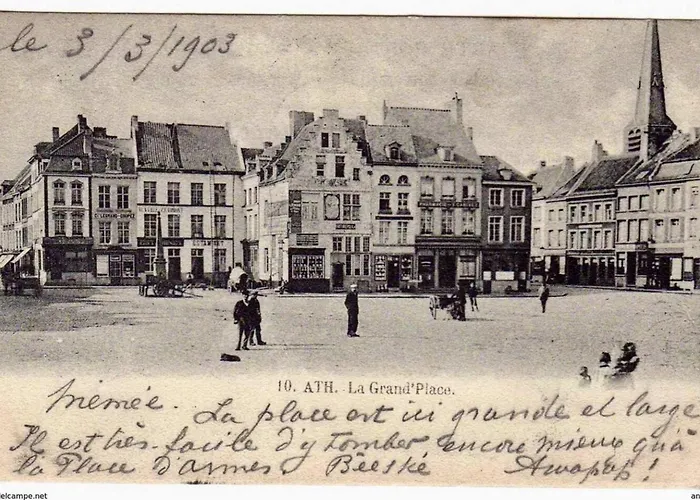 le 3/3/1903
10. ATH. La Grand'Place.
mémée. La place est ici grande et large
Il est très facile d'y tomber encore mieux qu'à
la Place d'armes
delcampe.net